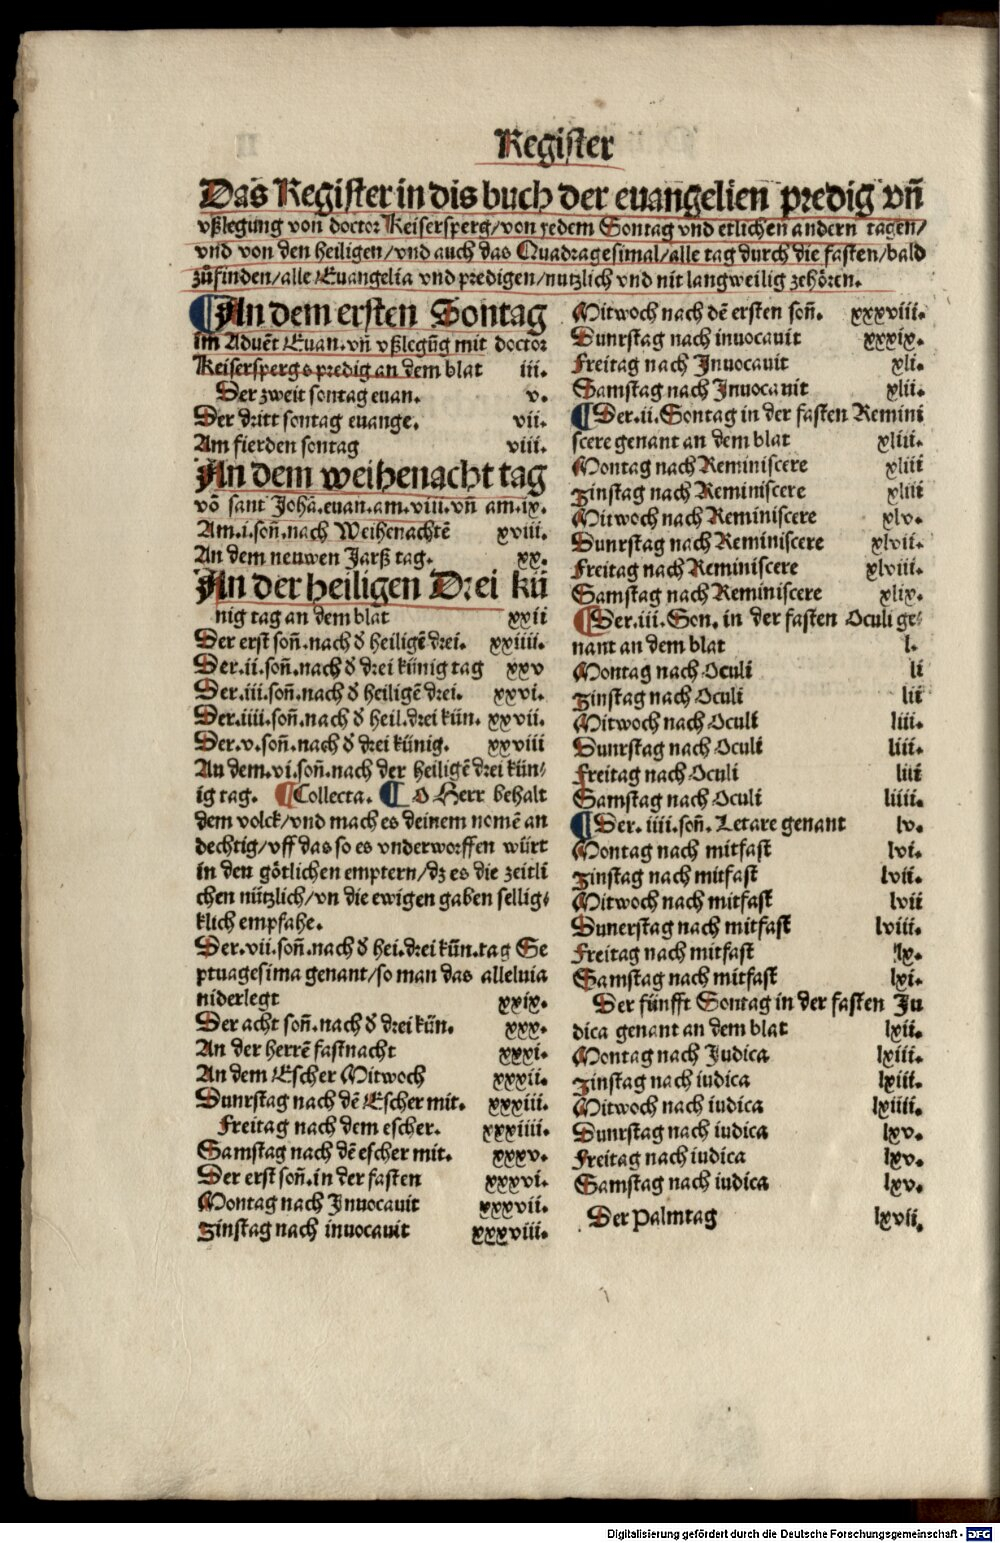 Register
Das Register in dis buch der euangelien predig vñ
vßlegung von doctor Keisersperg/von yedem Sontag vnd etlichen andern tagen/
vnd von den heiligen/vnd auch das Quadragesimal/alle tag durch die fasten/bald
zůfinden/alle Euangelia vnd predigen/nutzlich vnd nit langweilig zehören.
¶An dem ersten Sontag
im Aduēt Euan. vñ vßlegũg mit doctor
Keisersperg s predig an dem blat iii.
Der zweit sontag euan. v.
Der dritt sontag euange. vii.
Am fierden sontag viii.
An dem weihenacht tag
vō sant Johā. euan. am. viii. vñ am. ix.
Am. i. soñ. nach Weihenachtē xviii.
An dem neuwen Jarß tag. xx.
An der heiligen Drei kü
nig tag an dem blat xxii
Der erst soñ. nach d̕ heiligē drei. xxiiii.
Der. ii. soñ. nach d̕ drei künig tag xxv
Der. iii. soñ. nach d̕ heiligē drei. xxvi.
Der. iiii. soñ. nach d̕ heil. drei kün. xxvii.
Der. v. soñ. nach d̕ drei künig. xxviii
An dem. vi. soñ. nach der heiligē drei kün⸗
ig tag. ¶Collecta. ¶ O Herr behalt
dem volck/vnd mach es deinem nomē an
dechtig/vff das so es vnderworffen würt
in den götlichen emptern/dz es die zeitli
chen nützlich/vn die ewigen gaben sellig⸗
klich empfahe.
Der. vii. soñ. nach d̕ hei. drei kün. tag Se
ptuagesima genant/so man das alleluia
niderlegt xxix.
Der acht soñ. nach d̕ drei kün. xxx.
An der herrē fastnacht xxxi.
An dem Escher Mitwoch xxxii.
Dunrstag nach dē Escher mit. xxxiii.
Freitag nach dem escher. xxxiiii.
Samstag nach dē escher mit. xxxv.
Der erst soñ. in der fasten xxxvi.
Montag nach Inuocauit xxxvii.
Zinstag nach inuocauit xxxviii.
Mitwoch nach dē ersten soñ. xxxviii.
Dunrstag nach inuocauit xxxix.
Freitag nach Inuocauit xli.
Samstag nach Inuocauit xlii.
¶Der. ii. Sontag in der fasten Remini
scere genant an dem blat xliii.
Montag nach Reminiscere xliii
Zinstag nach Reminiscere xliii
Mitwoch nach Reminiscere xlv.
Dunrstag nach Reminiscere xlvii.
Freitag nach Reminiscere xlviii.
Samstag nach Reminiscere xlix.
¶Der. iii. Son. in der fasten Oculi ge⸗
nant an dem blat l.
Montag nach Oculi li
Zinstag nach Oculi lii
Mitwoch nach Oculi liii.
Dunrstag nach Oculi liii.
Freitag nach Oculi liii
Samstag nach Oculi liiii.
¶Der. iiii. soñ. Letare genant lv.
Montag nach mitfast lvi.
Zinstag nach mitfast lvii.
Mitwoch nach mitfast lvii
Dunerstag nach mitfast lviii.
Freitag nach mitfast lx.
Samstag nach mitfast lxi.
Der fünfft Sontag in der fasten Ju
dica genant an dem blat lxii.
Montag nach Judica lxiii.
Zinstag nach iudica lxiii.
Mitwoch nach iudica lxiiii.
Dunrstag nach iudica lxv.
Freitag nach iudica lxv.
Samstag nach iudica lxv.
Der Palmtag lxvii.
Digitalisierung gefördert durch die Deutsche Forschungsgemeinschaft - DFG